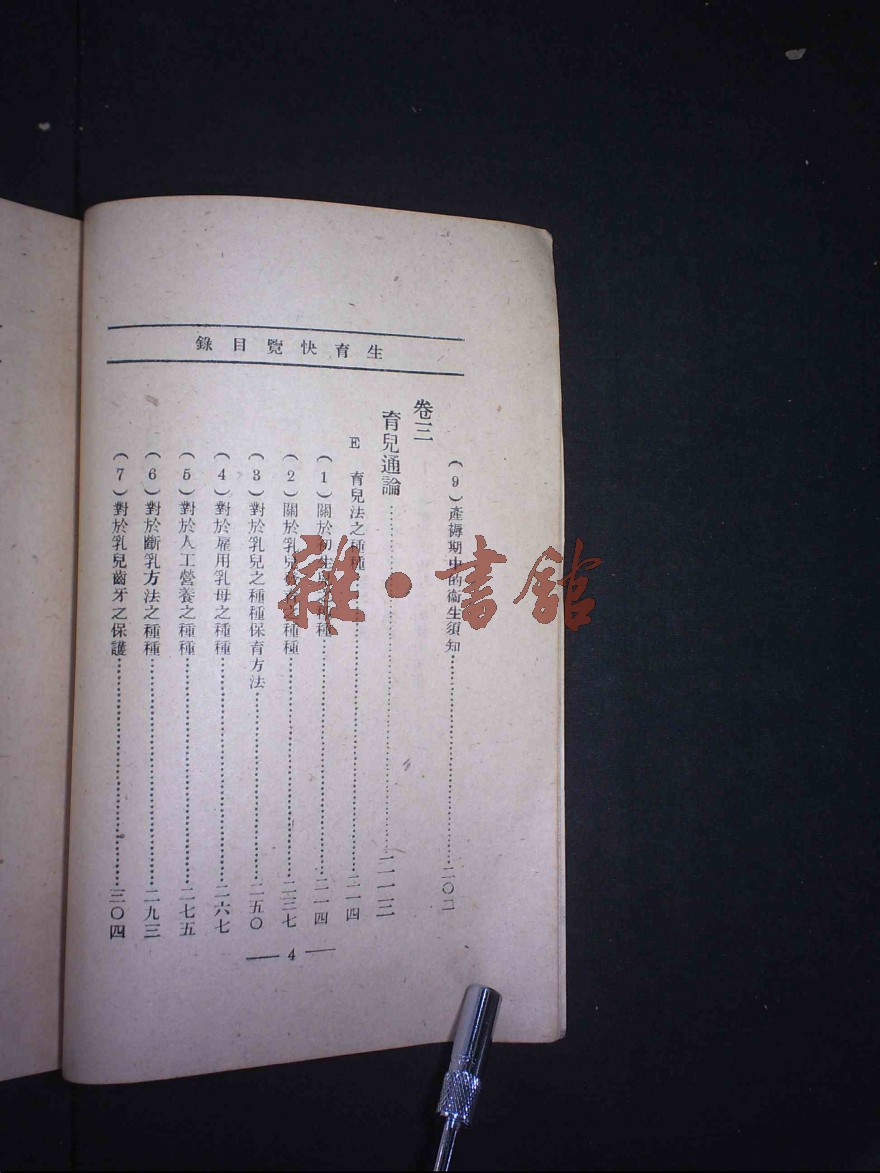 生育快覽目錄
（9）產褥期中的衞生須知……二〇二
卷三
育兒通論……二一三
E 育兒法之種種……二一四
（1）關於初生兒之種種……二一四
（2）關於乳兒營養之種種……二三七
（3）對於乳兒之種種保育方法……二五〇
（4）對於雇用乳母之種種……二六七
（5）對於人工營養之種種……二七五
（6）對於斷乳方法之種種……二九三
（7）對於乳兒齒牙之保護……三〇四
— 4 —
雜·書館